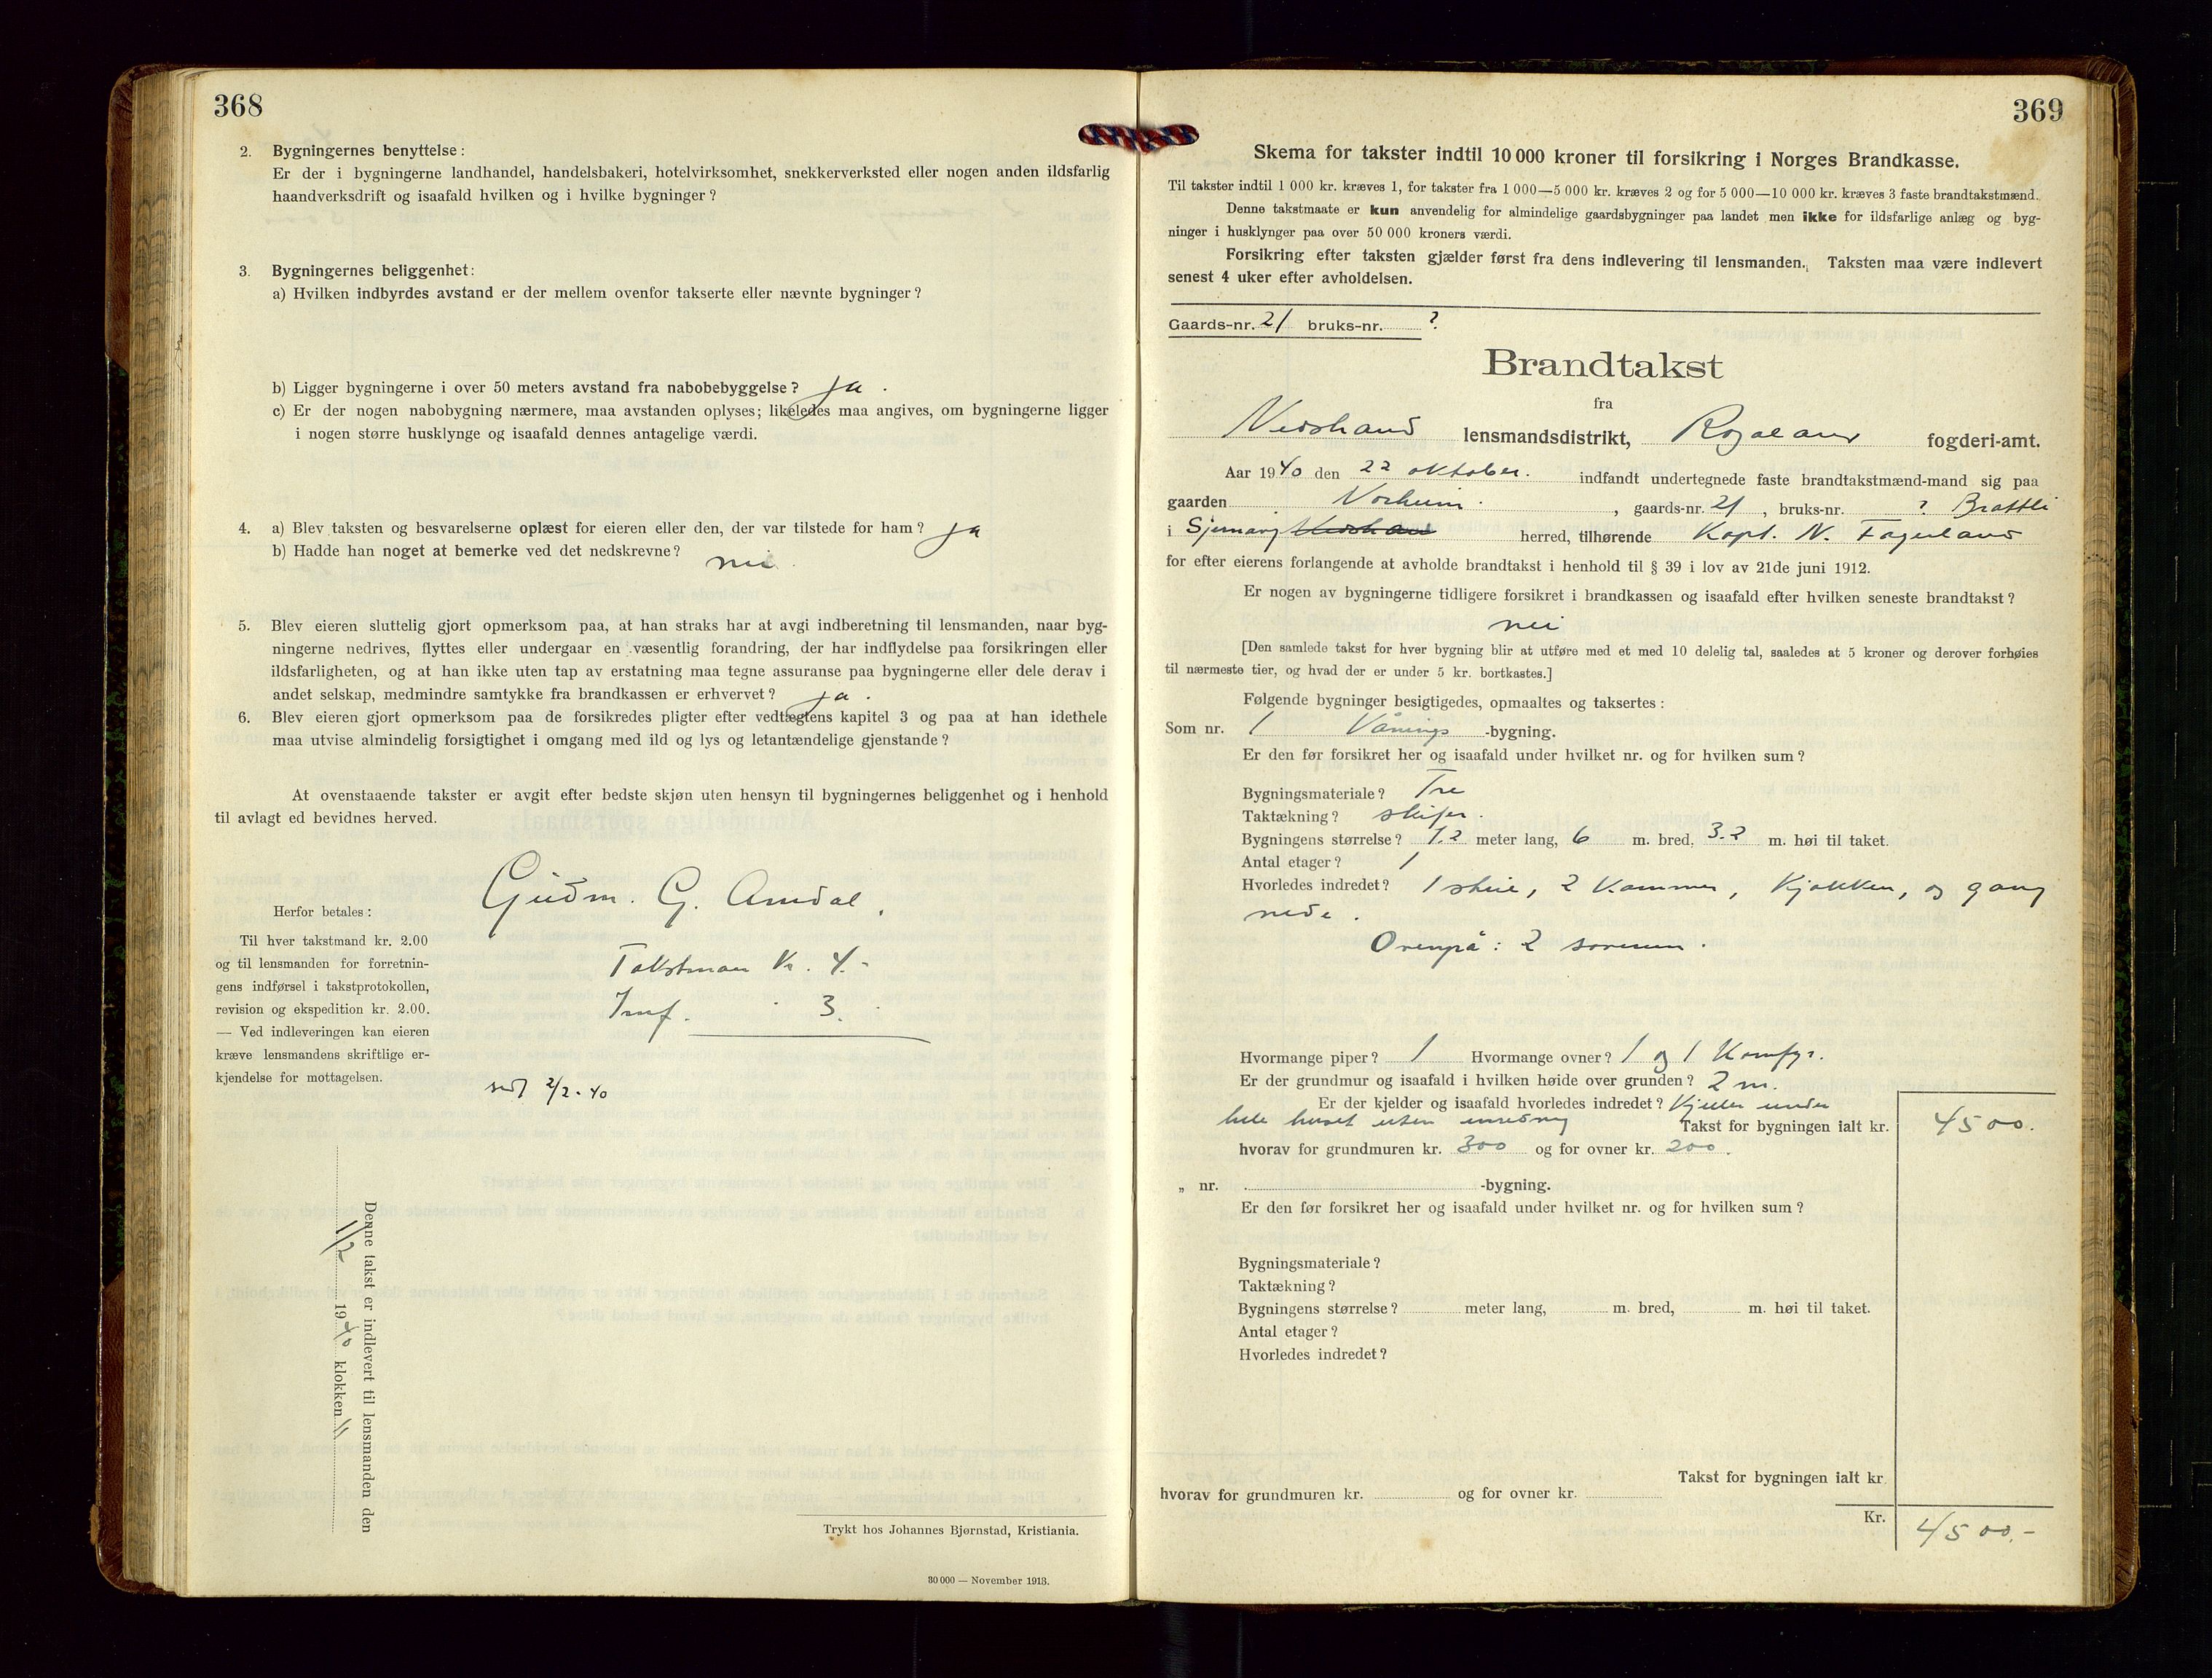 368
2. Bygningernes benyttelse:
Er der i bygningerne landhandel, handelsbakeri, hotelvirksomhet, snekkerverksted eller nogen anden ildsfarlig
haandverksdrift og isaafald hvilken og i hvilke bygninger?
3. Bygningernes beliggenhet:
a) Hvilken indbyrdes avstand er der mellem ovenfor takserte eller nævnte bygninger?
b) Ligger bygningerne i over 50 meters avstand fra nabobebyggelse? ja.
c) Er der nogen nabobygning nærmere, maa avstanden oplyses; likeledes maa angives, om bygningerne ligger
i nogen større husklynge og isaafald dennes antagelige værdi.
4. a) Blev taksten og besvarelserne oplæst for eieren eller den, der var tilstede for ham? ja
b) Hadde han noget at bemerke ved det nedskrevne? nei.
5. Blev eieren sluttelig gjort opmerksom paa, at han straks har at avgi indberetning til lensmanden, naar byg-
ningerne nedrives, flyttes eller undergaar en væsentlig forandring, der har indflydelse paa forsikringen eller
ildsfarligheten, og at han ikke uten tap av erstatning maa tegne assuranse paa bygningerne eller dele derav i
andet selskap, medmindre samtykke fra brandkassen er erhvervet? ja.
6. Blev eieren gjort opmerksom paa de forsikredes pligter efter vedtægtens kapitel 3 og paa at han idethele
maa utvise almindelig forsigtighet i omgang med ild og lys og letantændelige gjenstande?
At ovenstaaende takster er avgit efter bedste skjøn uten hensyn til bygningernes beliggenhet og i henhold
til avlagt ed bevidnes herved.
Gudm. G. Amdal.
Herfor betales:
Til hver takstmand kr. 2.00
og til lensmanden for forretnin-
gens indførsel i takstprotokollen,
revision og ekspedition kr. 2.00.
— Ved indleveringen kan eieren
kræve lensmandens skriftlige er-
kjendelse for mottagelsen.
Takstman Kr. 4.-
Innf. 3.
2/2-40
Denne takst er indlevert til lensmanden den
1/2 1940 klokken 11
Trykt hos Johannes Bjørnstad, Kristiania.
30 000 — November 1913.
369
Skema for takster indtil 10 000 kroner til forsikring i Norges Brandkasse.
Til takster indtil 1 000 kr. kræves 1, for takster fra 1 000—5 000 kr. kræves 2 og for 5 000—10 000 kr. kræves 3 faste brandtakstmænd.
Denne takstmaate er kun anvendelig for almindelige gaardsbygninger paa landet men ikke for ildsfarlige anlæg og byg-
ninger i husklynger paa over 50 000 kroners værdi.
Forsikring efter taksten gjælder først fra dens indlevering til lensmanden. Taksten maa være indlevert
senest 4 uker efter avholdelsen.
Gaards-nr. 21 bruks-nr. ?
Brandtakst
fra
Nedstrand lensmandsdistrikt, Rogaland fogderi-amt.
Aar 1940 den 22 oktober. indfandt undertegnede faste brandtakstmænd-mand sig paa
gaarden , gaards-nr. 21, bruks-nr. ? Brattli
i Sjernarøy Nedstrand herred, tilhørende Kapt. N. Fagerland
for efter eierens forlangende at avholde brandtakst i henhold til § 39 i lov av 21de juni 1912.
Er nogen av bygningerne tidligere forsikret i brandkassen og isaafald efter hvilken seneste brandtakst?
nei
[Den samlede takst for hver bygning blir at utføre med et med 10 delelig tal, saaledes at 5 kroner og derover forhøies
til nærmeste tier, og hvad der er under 5 kr. bortkastes.]
Følgende bygninger besigtigedes, opmaaltes og taksertes:
Som nr. 1 Vånings -bygning.
Er den før forsikret her og isaafald under hvilket nr. og for hvilken sum?
Bygningsmateriale? Tre
Taktækning? skifer.
Bygningens størrelse? 7.2 meter lang, 6 m. bred, 3.2 m. høi til taket.
Antal etager? 1
Hvorledes indredet? 1 stue, 2 Kammer, Kjøkken, og gang
nede.
Ovenpå: 2 soverum.
Hvormange piper? 1 Hvormange ovner? 1 og 1 Komfyr.
Er der grundmur og isaafald i hvilken høide over grunden? 2 m.
Er der kjelder og isaafald hvorledes indredet? Kjeller under
hele huset uten inredning Takst for bygningen ialt kr. 4500.
hvorav for grundmuren kr. 300 og for ovner kr. 200.
„ nr. -bygning.
Er den før forsikret her og isaafald under hvilket nr. og for hvilken sum?
Bygningsmateriale?
Taktækning?
Bygningens størrelse? meter lang, m. bred, m. høi til taket.
Antal etager?
Hvorledes indredet?
Takst for bygningen ialt kr.
hvorav for grundmuren kr. og for ovner kr.
Kr. 4500.-